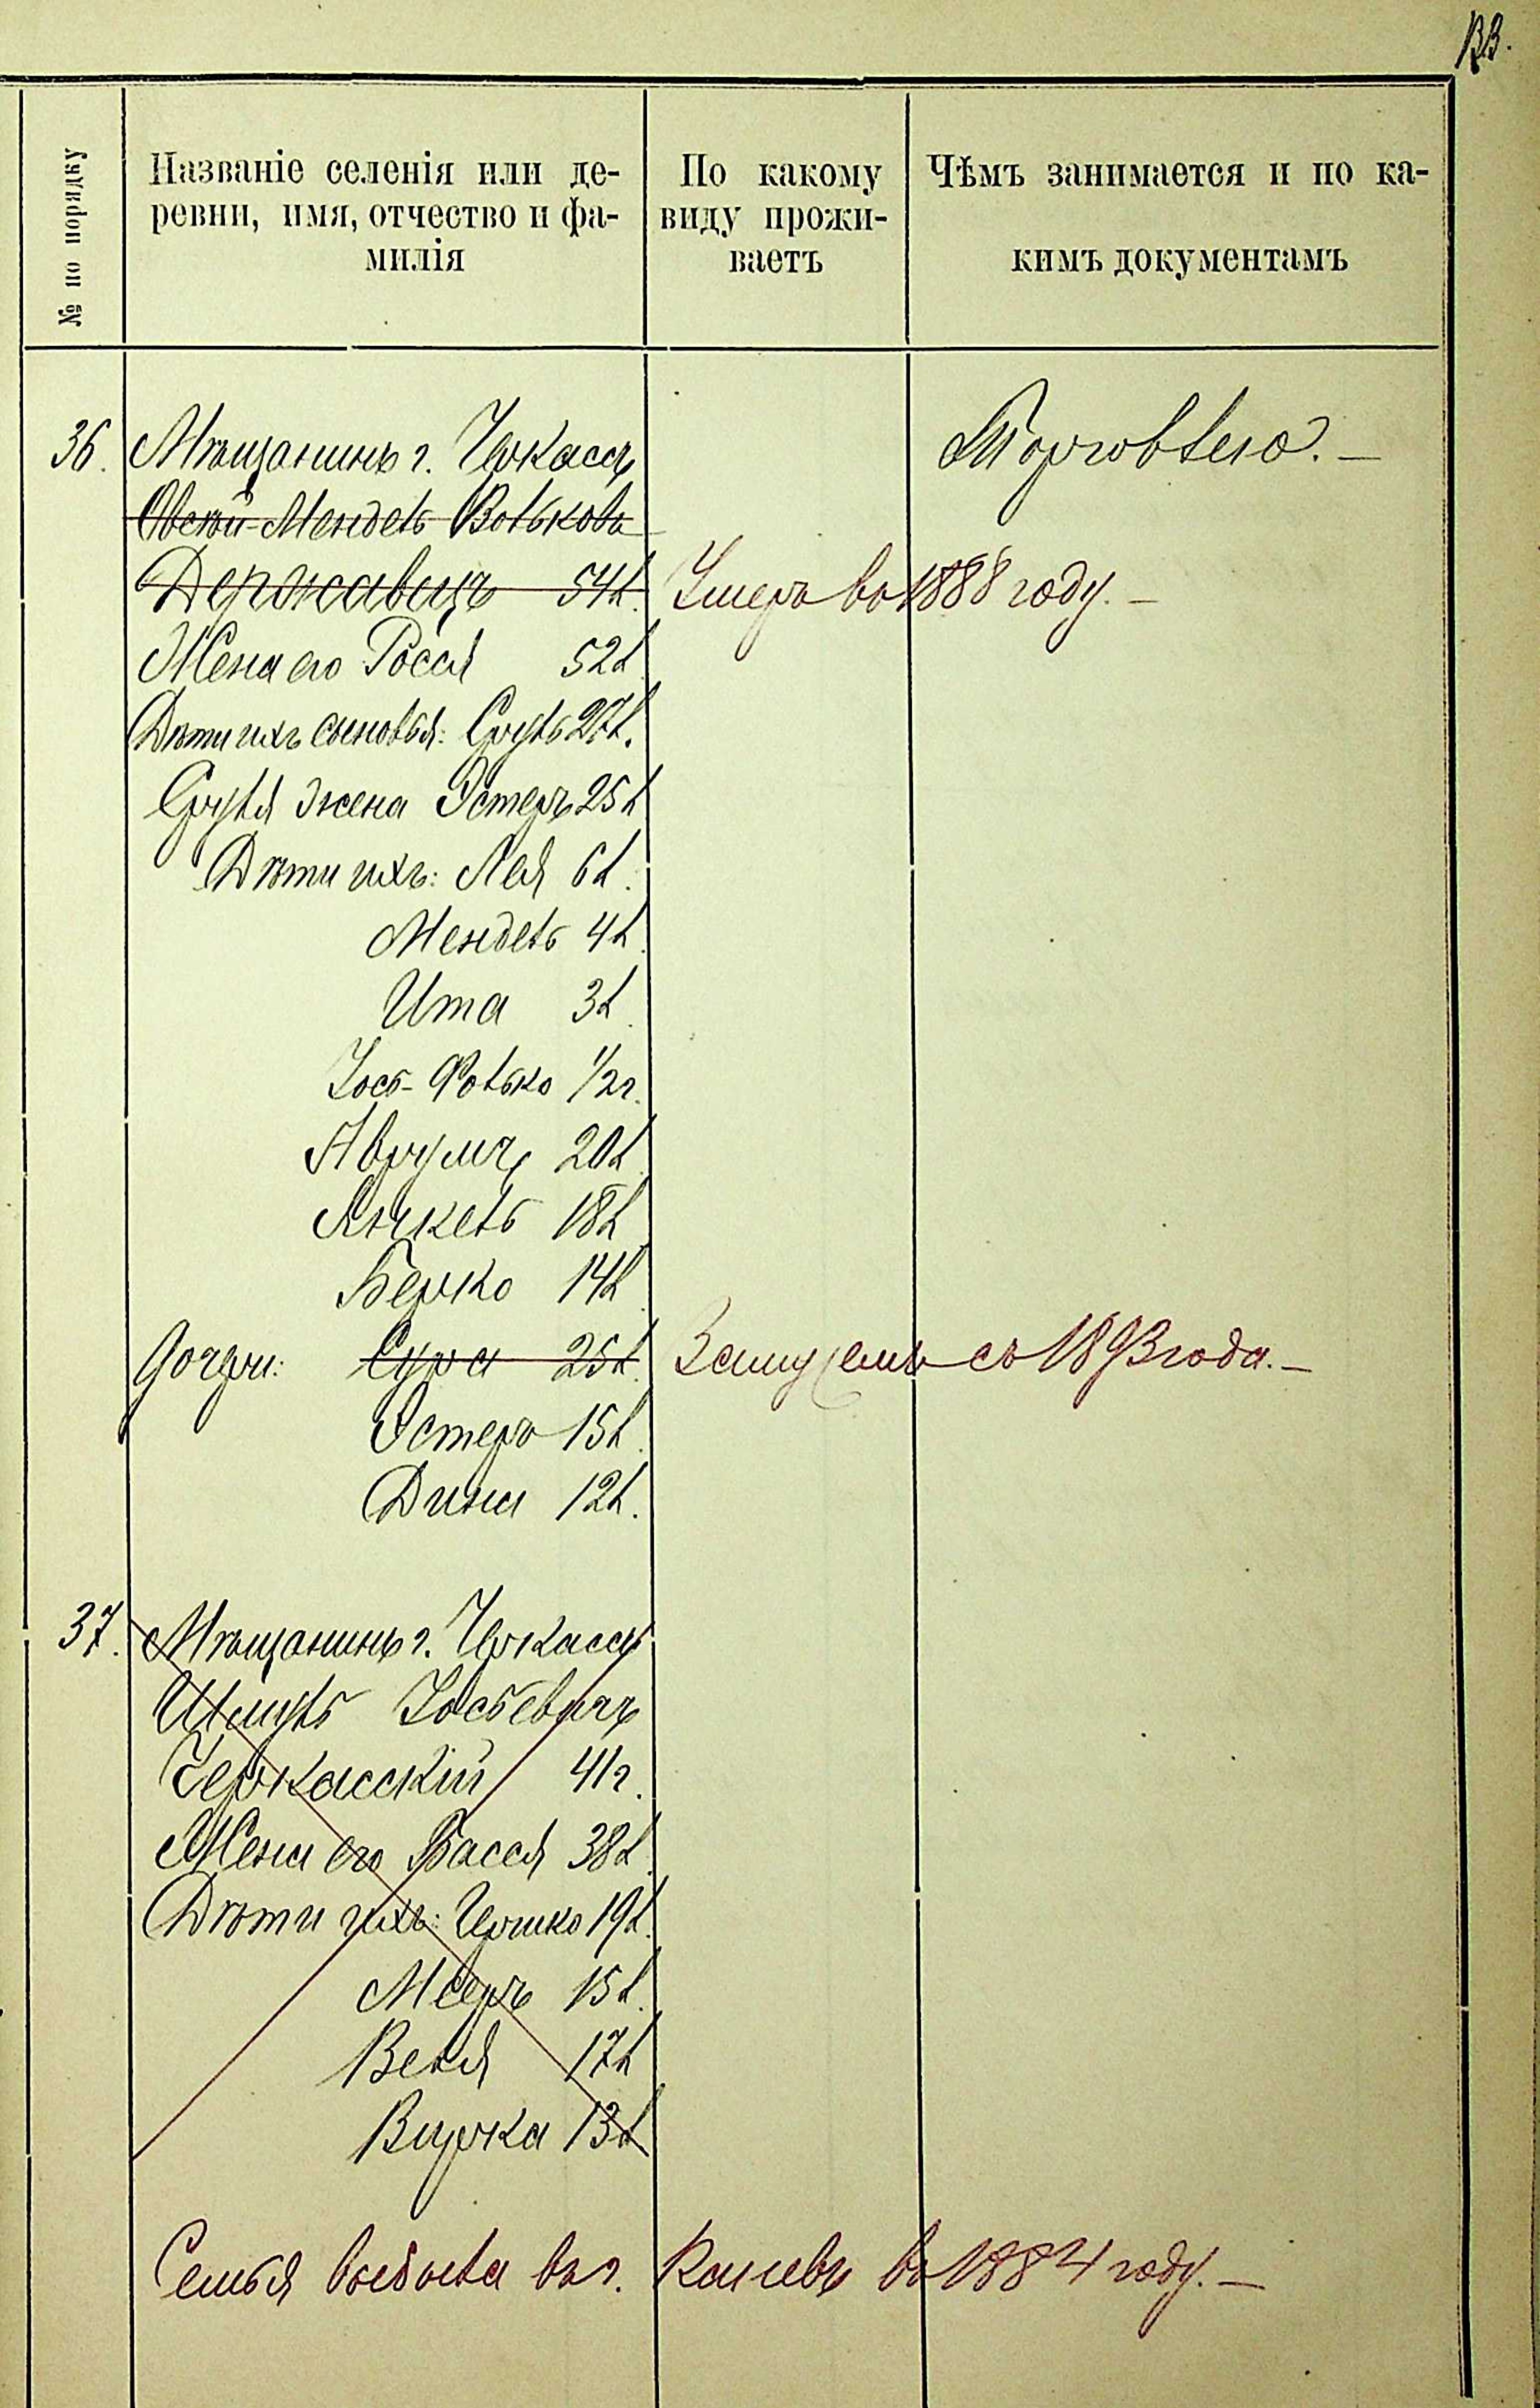 133.
№ по порядку
Названіе селенія или де-
ревни, имя, отчество и фа-
милія
По какому
виду прожи-
ваетъ
Чѣмъ занимается и по ка-
кимъ документамъ
36. Мѣщанинъ г. Черкассъ Торговлею. —
Овсей-Мендель Волькова
Державецъ 54 л. Умеръ въ 1888 году. —
Жена его Росся 52 л
Дѣти ихъ сыновья: Сруль 27 л.
Сруля жена Эстеръ 25 л
Дѣти ихъ: Лея 6 л.
Мендель 4 л.
Ита 3 л.
Іось-Фолько 1/2 г.
Аврумъ 20 л
Янкель 18 л
Берко 14 л
Дочери: Сура 25 л. Замужемъ съ 1893 года. —
Эстеръ 15 л.
Дина 12 л.
37. Мѣщанинъ г. Черкассъ
Шмуль Іосьевичъ
Черкасскій 41 г.
Жена его Басся 38 л.
Дѣти ихъ: Гершко 19 л.
Мееръ 15 л.
Веля 17 л
Вирка 13 л
Семья выбыла въ г. Каневъ въ 1884 году. —